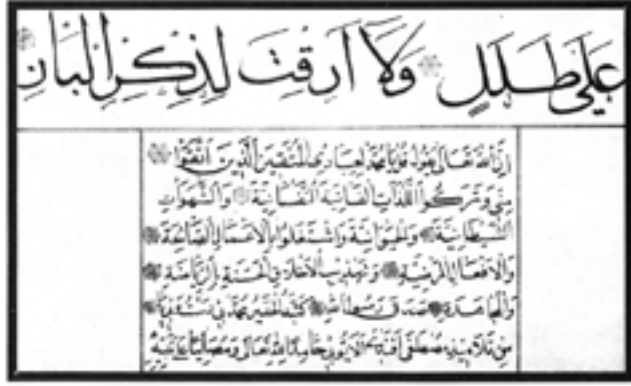 عَلَى طَلَلٍ وَلَا أَرِقْتَ لِذِكْرِ الْبَانِ
إن الله تعالى يقول يا محمد لعبادي المتقين الذين اتقوا
مني وتركوا اللذات الفانية النفسانية والشهوات
الشيطانية والحيوانية واشتغلوا بالأعمال الصالحة
والأفعال المرضية وتهذيب الأخلاق الحسنة بالرياضة
والمجاهدة صدق رسول الله كتبه الحقير محمد
من تلاميذ مصطفى حامدا لله تعالى ومصليا على نبيه